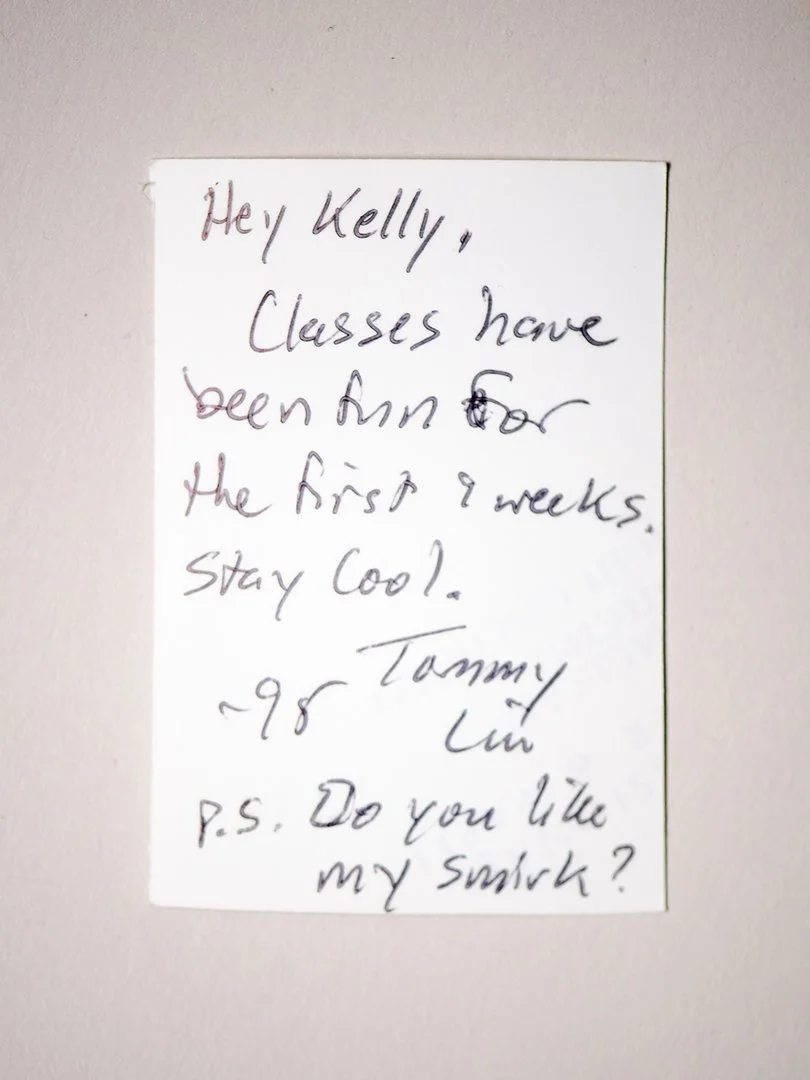 Hey Kelly,
Classes have
been fun For
the first 9 weeks.
Stay Cool.
Tommy
~98
P.S. Do you like
my smirk?